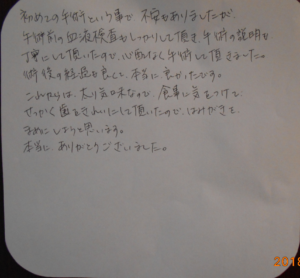 初めての手術という事で不安もありましたが、
手術前の血液検査もしっかりして頂き、手術の説明も
丁寧にして頂いたので、心配なく手術して頂きました。
術後の経過も良くて、本当に良かったです。
これからは、太り気味なので、食事に気をつけて、
せっかく歯をきれいにして頂いたので、はみがきを
まめにしようと思います。
本当にありがとうございました。
2018